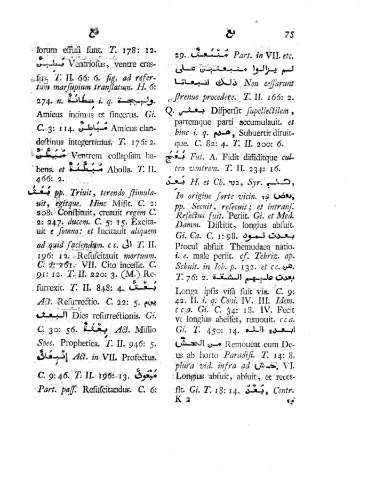 بطح
بعج
75
lorum essusi sunt. T. 178: 12.
Ventriosus, ventre cras-
sus. T. II. 66: 6. fig. ad refer-
tum marsupium translatum. H. 6:
274. n.
Amicus intimus et sincerus. Gi.
C. 3: 114. Amicus clan-
destinus integerrimus. T. 176: 2.
Ventrem collapsum ha-
bens. et Abolla. T. II.
466: 2.
pp. Trivit, terendo stimula-
vit, egitque. Hinc Misit. C. 2:
208. Constituit, creavit regem C.
2: 247. ducem. C. 5: 15. Excita-
vit e somno; et Incitavit aliquem
ad quid faciendum cc. الى T. II.
196: 12. Resuscitavit mortuum.
C. 2: 261. VII. Cito incessit. C.
91: 12. T. II. 200: 3. (M.) Re-
surrexit. T. II. 848: 4.
Act. Resurrectio. C. 22: 5. يوم
البعث Dies resurrectionis. Gi.
C. 30: 56. Act. Missio
Spec. Prophetica. T. II. 946: 5.
Act. in VII. Profectus.
C. 9: 46. T. II. 196: 13.
Part. pass. Resuscitandus. C. 6:
29. Part. in VII. etc.
لم يزالوا منبعثين على
ذلك Non cessarunt
strenue procedere. T. II. 166: 2.
Q. Dispersit supellectilem,
partemque parti accumulavit. et
hinc i. q. هدم, Subvertit diruit-
que. C. 82: 4. T. II. 200: 6.
Fut. A. Fidit diffiditque cul-
tro ventrem. T. II. 234: 16.
H. et Ch. Syr.
In origine forte vicin.
pp. Secuit, resecuit; et intrans.
Resectus fuit. Periit. Gi. et Med.
Damm. Distitit, longius abfuit.
Gi. Ca. C. 1: 98.
Procul absuit Themudaea natio.
i. e. male periit. cf. Tebriz. ap.
Schult. in Iob. p. 132. et cc. عن
T. 76: 2.
Longa ipsis visa fuit vis. C. 9:
42. II. i. q. Coni. IV. III. Idem.
cca. Gi. C. 34: 18. IV. Fecit
vt longius abesset, removit. cca.
Gi. T. 450: 14. ابعده الله
Removeat eum De-
us ab horto Paradisi. T. 14: 8.
plura vid. infra ad VI.
Longius absuit, abivit, et reces-
sit. Gi. T. 18: 14. Contr.
K 2